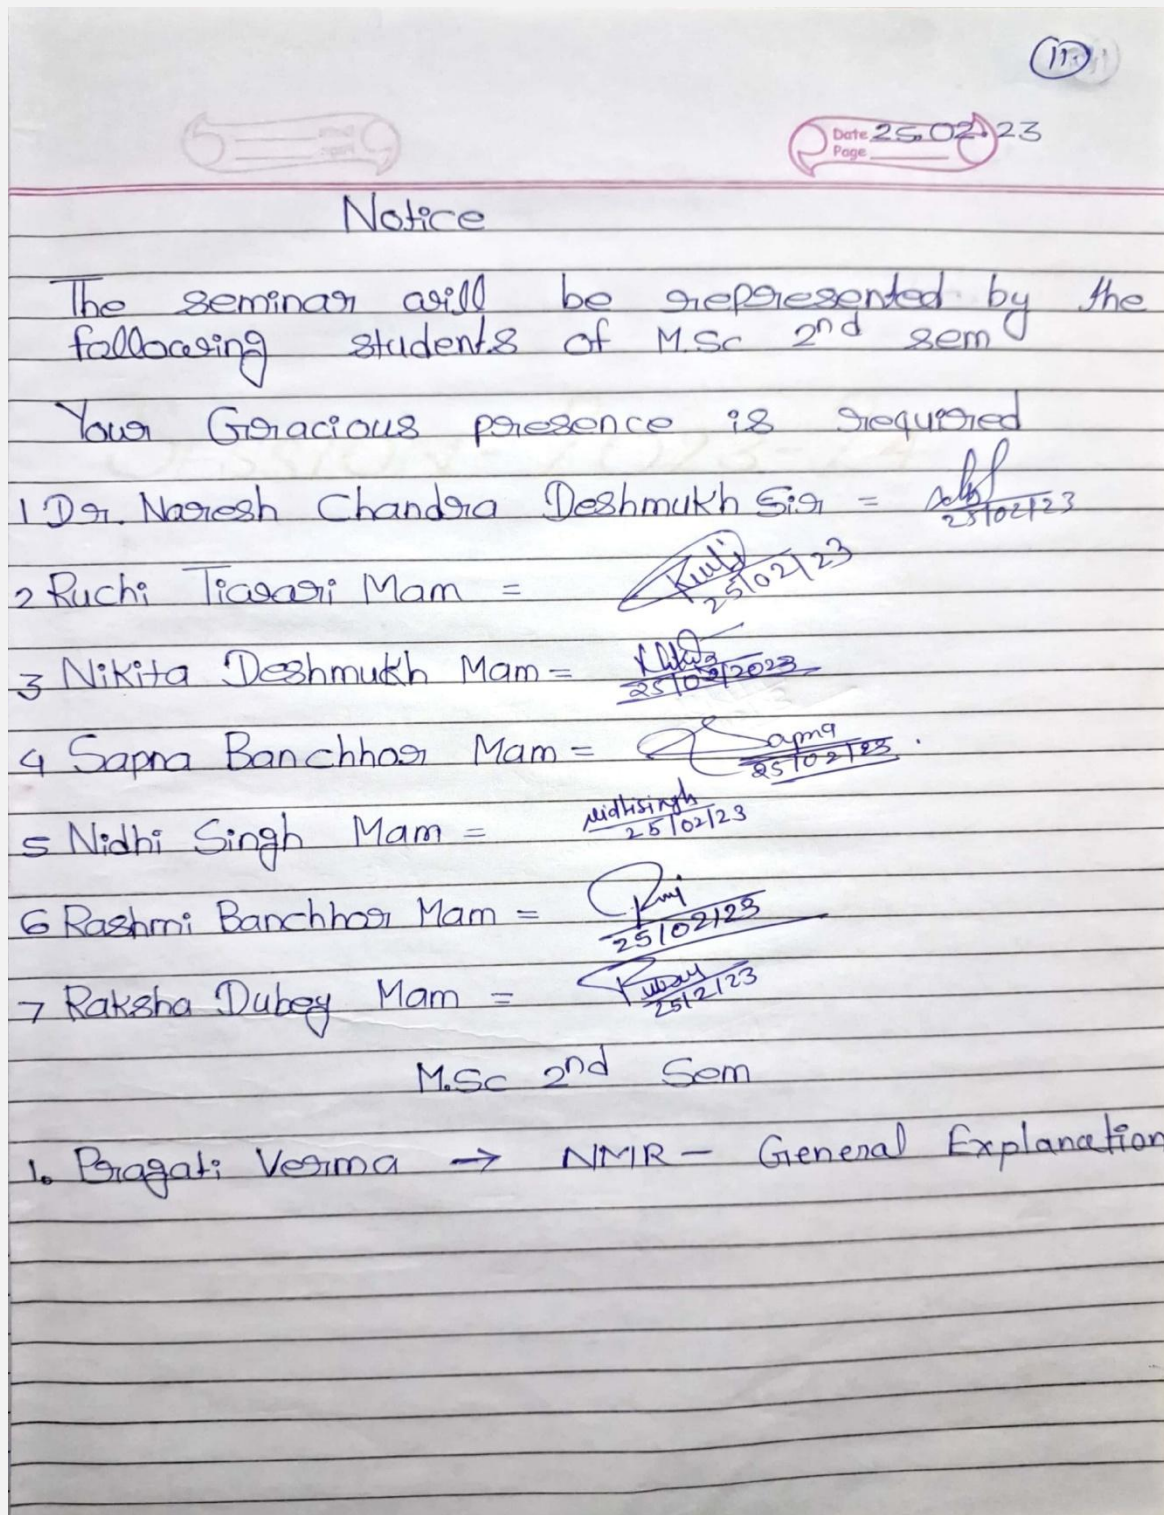 11
Date 25.02.23
Page
Notice
The seminar will be represented by the
following students of M.Sc 2nd sem
Your Gracious presence is required
1 Dr. Naresh Chandra Deshmukh Sir =
25/02/23
2 Ruchi Tiwari Mam = Ruchi
25/02/23
3 Nikita Deshmukh Mam = Nikita
25/02/2023
4 Sapna Banchhor Mam = Sapna
25/02/23.
5 Nidhi Singh Mam = Nidhisingh
25/02/23
6 Rashmi Banchhor Mam =
25/02/23
7 Raksha Dubey Mam = Dubey
25/2/23
M.Sc 2nd Sem
1. Pragati Verma → NMR - General Explanation